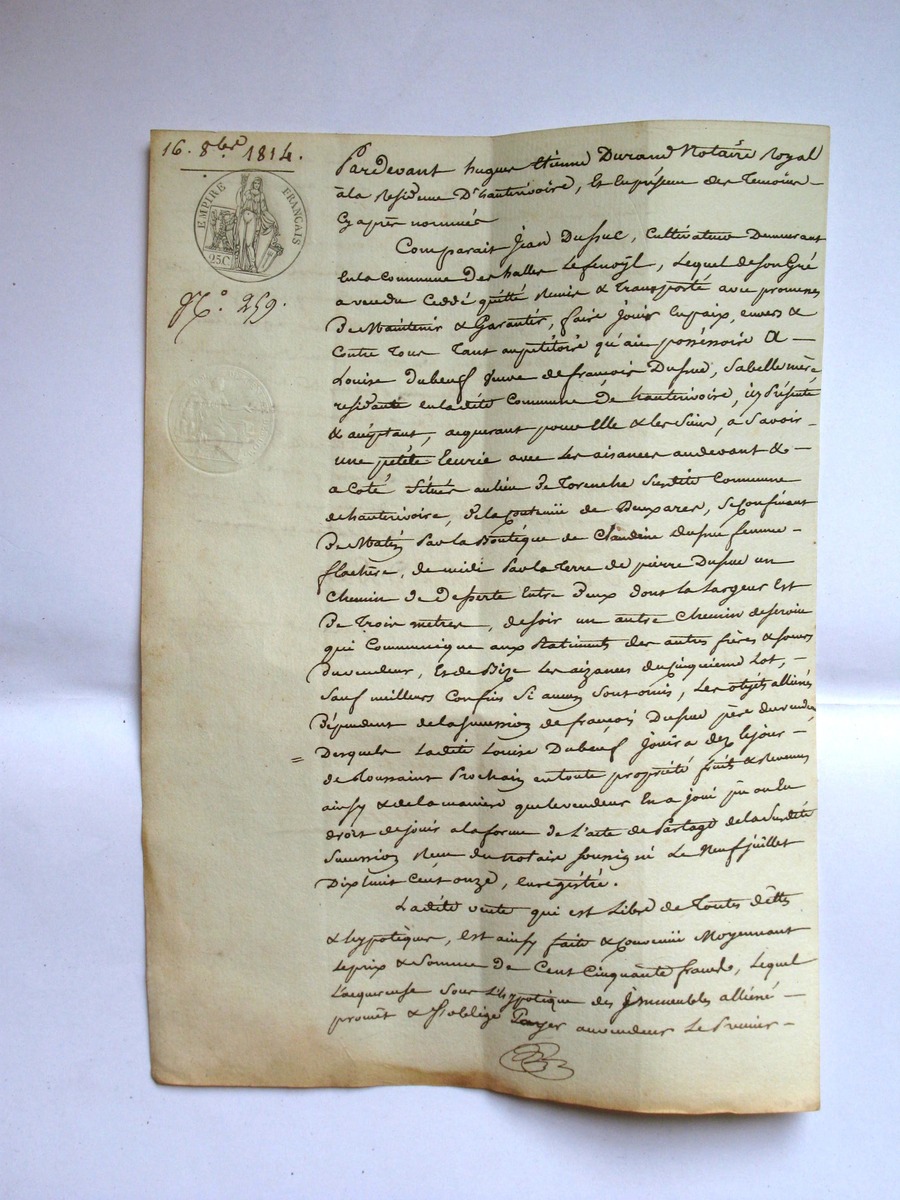 16. 8bre 1814.
EMPIRE FRANÇAIS
25C
N.° 259.
Pardevant hugues Etienne Durand Notaire Royal
à la Residence D'hauterivoire, Et En présence des Temoins
Cy après nommés
Comparait Jean Dussuc, Cultivateur Demeurant
En la Commune des halles Le fenoÿl, Lequel de Son Gré
a vendu Ceddé quitté Remis & Transporté avec promesses
De Maintenir & Garantir, faire jouir En paix, envers &
Contre Tous Tant au pétitoire qu'au posséssoire A
Louise Dubeuf veuve de françois Dussuc, Sa belle mère
residante en la dite Commune De hauterivoire, icy Présente
& acéptant, acquerant pour Elle & les Siens, à Savoir
une petite Ecurie avec Les aisances au devant &
a Coté Situés au lieu de Torenche Susdite Commune
de hauterivoire, de la Contenue de Deux ares, Se Confinant
De Matin Par La Boutique de Claudine Dussuc femme
flachère, de midi Par La Terre de pierre Dussuc un
Chemin de Desserte Entre Deux dont La Largeur Est
De Trois metres, de soir un autre Chemin de service
qui Communique aux Batiments des autres frères & soeurs
du vendeur, Et de Bize Les aizances du Cinquieme Lot,
Sauf meilleurs Confins Si aucun Sont omis, Les objets alliénés
Dépendent de la Succession de françois Dussuc père du vendeur,
= Desquels La dite Louise Dubeuf Jouira dez le jour
de Toussaint Prochain en toute propriété fruits & Revenus
ainsy & de la maniere que le vendeur En a joui pu ou du
droit de jouir a la forme de L'acte de Partage de la Susdite
Succession Reçu du Notaire soussigné Le Neuf juillet
Dix huit Cent onze, enregistré.
La dite vente qui est Libre de Toutes dêttes
& hypotèques, Est ainsy faite & Convenue Moyennant
Le prix & Somme de Cent Cinquante francs, Lequel
L'acquereuse Sous L'hypotèque des Immeubles alliéné
promêt & S'oblige Payer au vendeur Le Premier